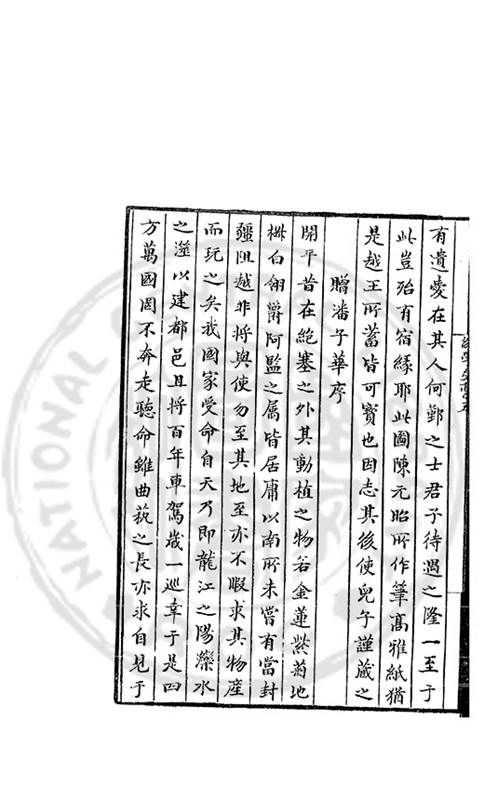 有遺愛在其人何鄞之士君子待遇之隆一至于
此豈殆有宿緣耶此圖陳元昭所作筆高雅紙猶
是越王所蓄皆可寳也因志其後使兒子謹藏之
贈潘子華序
開平昔在絶塞之外其動植之物若金蓮紫菊地
椒白翎爵阿監之属皆居庸以南所未嘗有當封
疆阻越非將與使勿至其地至亦不暇求其物産
而玩之矣我國家受命自天乃即龍江之陽灤水
之澨以建都邑且將百年車駕歲一巡幸于是四
方萬國罔不奔走聽命雖曲蓺之長亦求自見于
NATIONAL